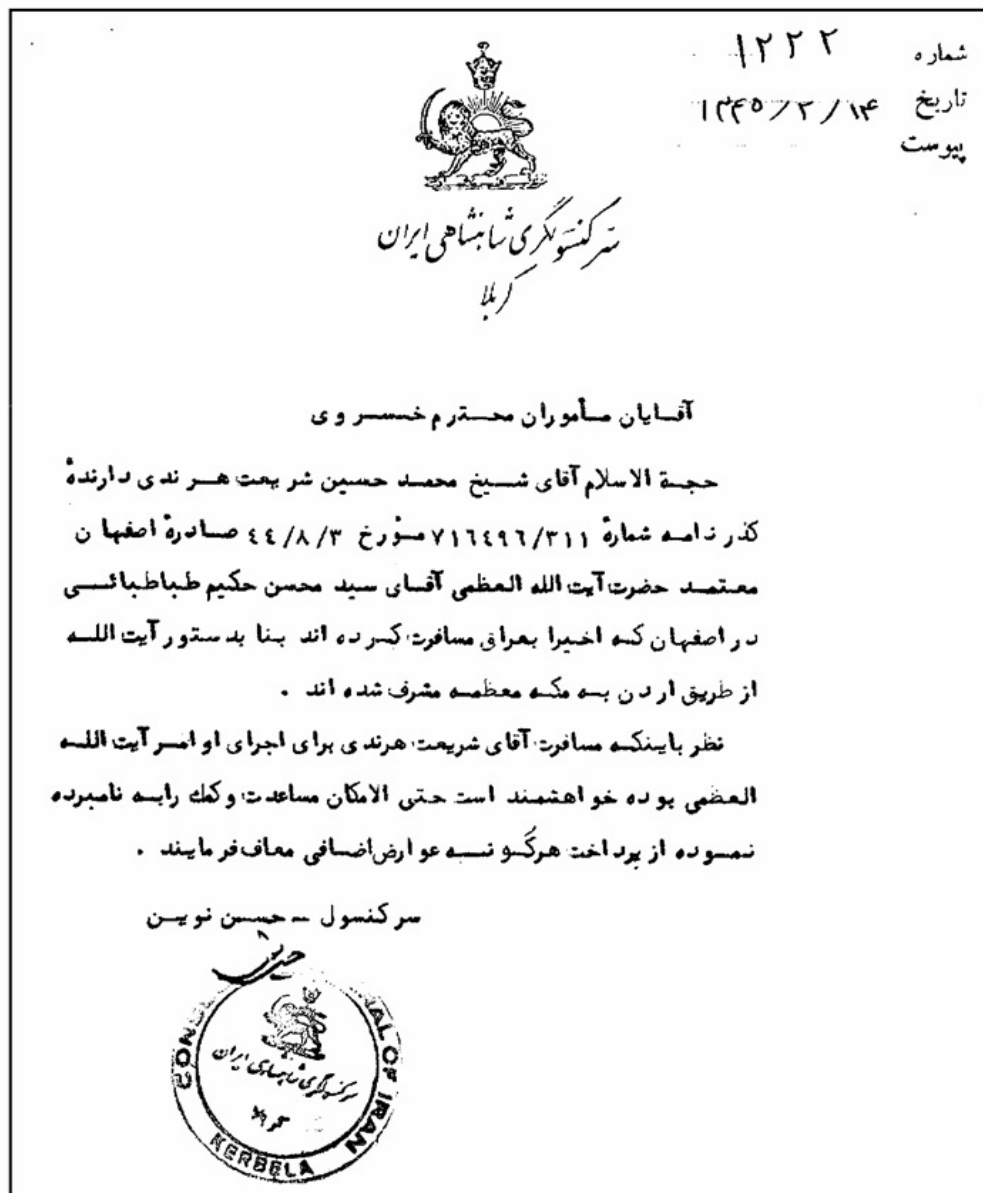 شماره ۱۲۲۲
تاریخ ۱۳۴۵/۲/۱۴
پیوست
سرکنسولگری شاهنشاهی ایران
کربلا
آقایان مأموران محترم خسروی
حجة الاسلام آقای شیخ محمد حسین شریعت هرندی دارندۀ
گذرنامه شمارۀ ۷۱۶۴۹۶/۳۱۱ مؤرخ ۴۴/۸/۳ صادرۀ اصفهان
معتمد حضرت آیت الله العظمی آقای سید محسن حکیم طباطبائی
در اصفهان که اخیرا بعراق مسافرت کرده اند بنا بدستور آیت الله
از طریق اردن به مکه معظمه مشرف شده اند .
نظر باینکه مسافرت آقای شریعت هرندی برای اجرای اوامر آیت الله
العظمی بوده خواهشمند است حتی الامکان مساعدت وکمک رابه نامبرده
نموده از پرداخت هرگونه عوارض اضافی معاف فرمایند .
سرکنسول - حسن نوین
سرکنسولگری شاهنشاهی ایران
کربلا
KERBELA
OF IRAN